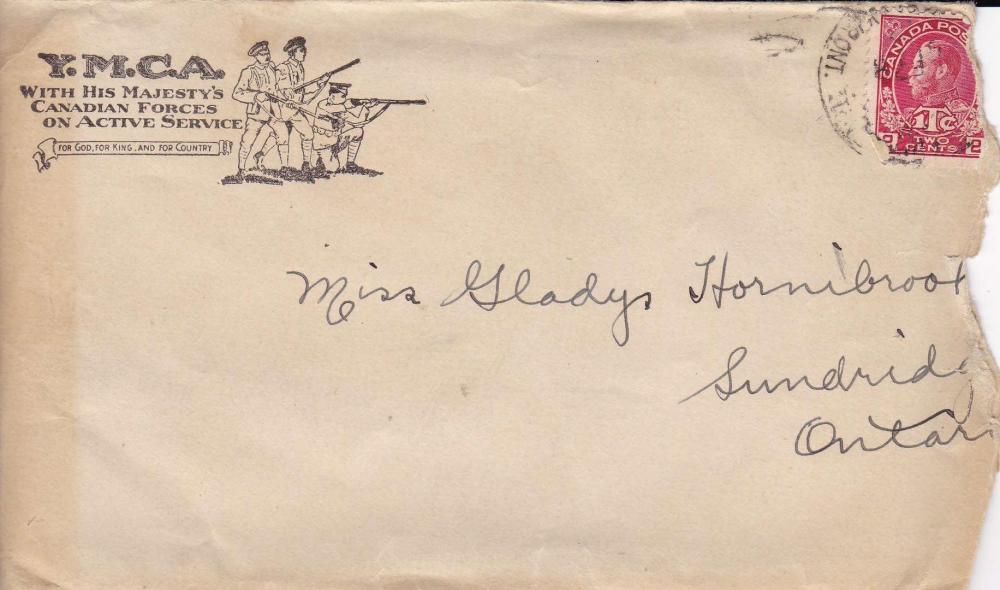 Y.M.C.A.
WITH HIS MAJESTY'S
CANADIAN FORCES
ON ACTIVE SERVICE
FOR GOD, FOR KING, AND FOR COUNTRY
ONT.
CANADA POS
1Tc
TWO
CENTS
2
Miss Gladys Hornibrook
Sundrid
Ontar